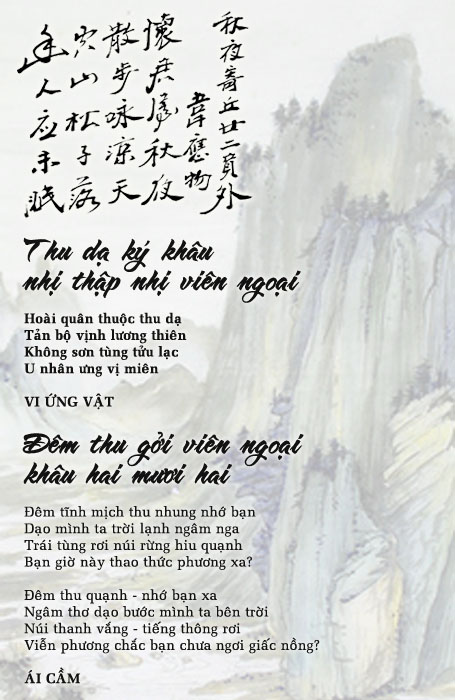 秋夜寄丘廿二員外
韋應物
懷君屬秋夜
散步咏凉天
空山松子落
幽人应未眠
Thu dạ ký khâu
nhị thập nhị viên ngoại
Hoài quân thuộc thu dạ
Tản bộ vịnh lương thiên
Không sơn tùng tửu lạc
U nhân ưng vị miên
VI ỨNG VẬT
Đêm thu gởi viên ngoại
khâu hai mươi hai
Đêm tĩnh mịch thu nhung nhớ bạn
Dạo mình ta trời lạnh ngâm nga
Trái tùng rơi núi rừng hiu quạnh
Bạn giờ này thao thức phương xa?
Đêm thu quạnh - nhớ bạn xa
Ngâm thơ dạo bước mình ta bên trời
Núi thanh vắng - tiếng thông rơi
Viễn phương chắc bạn chưa ngơi giấc nồng?
ÁI CẦM